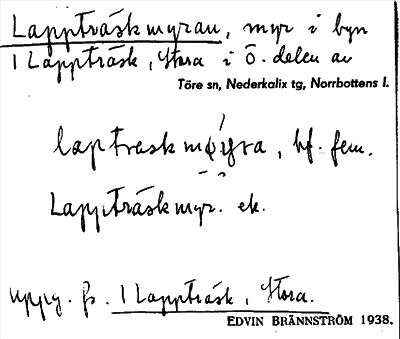 Lappträskmyran, myr i byn
1 Lappträsk, Stora i ö. delen av
Töre sn, Nederkalix tg, Norrbottens l.
bf. fem.
Lappträskmyr. ek.
uppg. fr. 1 Lappträsk, Stora.
EDVIN BRÄNNSTRÖM 1938.